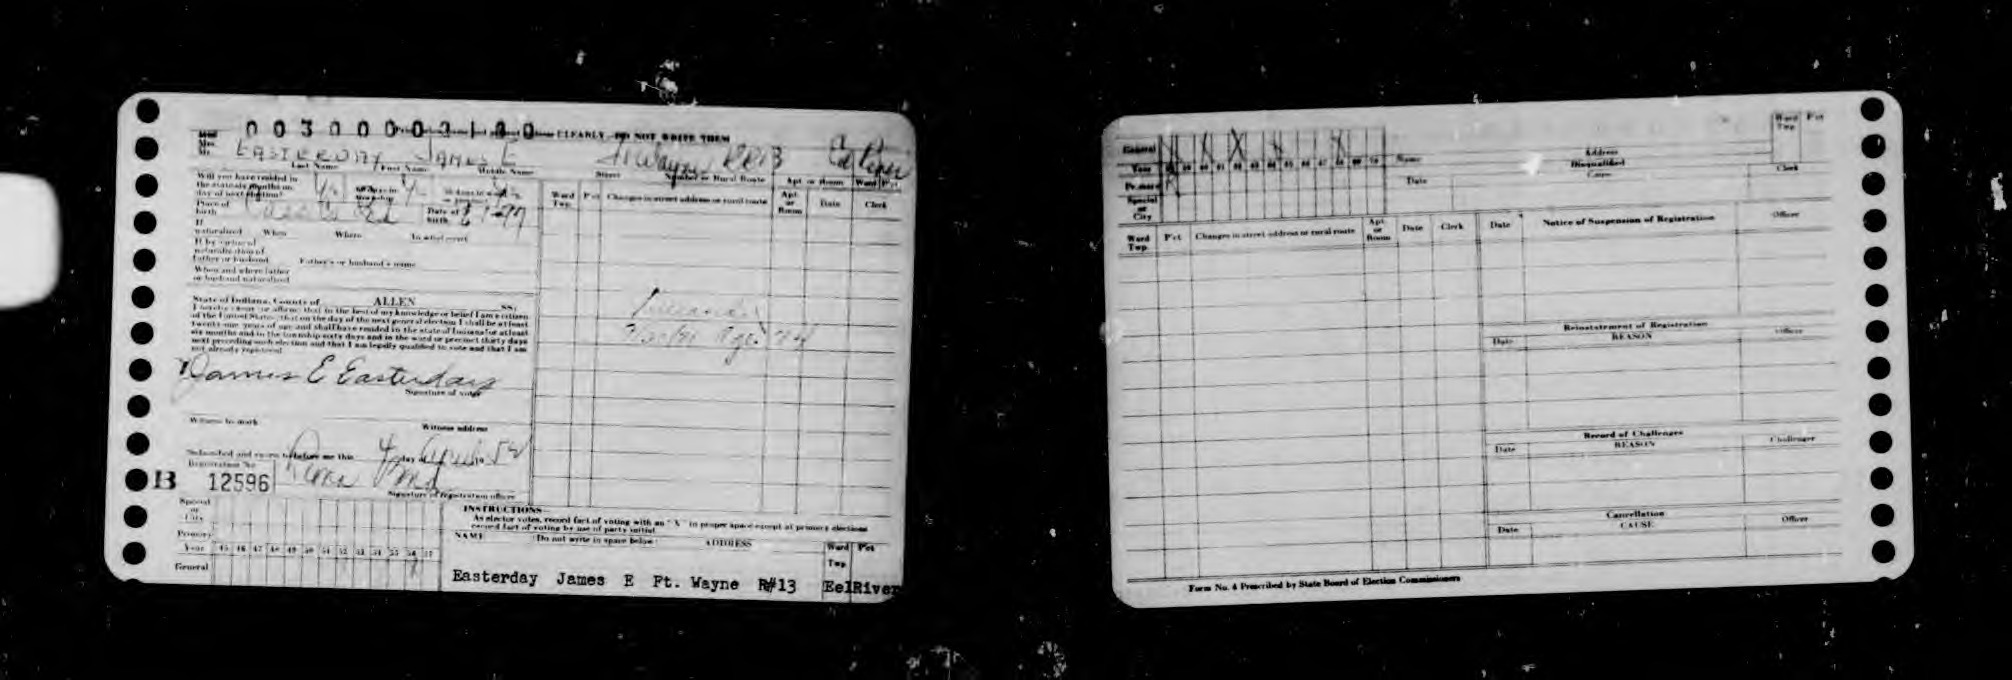 CLEARLY—DO NOT WRITE THEM
Mrs.
Mr. EASTERDAY JAMES E Ft Wayne RR 13 Eel River
Last Name First Name Middle Name Street Number or Rural Route Apt. or Room Ward Pct
Will you have resided in
the state six months on
day of next election?
Place of
birth
Date of
birth
If
naturalized When Where In what court
If by virtue of
naturalization of
father or husband Father's or husband's name
When and where father
or husband naturalized
Ward
Twp. Pct Changes in street address or rural route Apt.
or
Room Date Clerk
State of Indiana, County of ALLEN SS:
I hereby swear (or affirm) that to the best of my knowledge or belief I am a citizen
of the United States, that on the day of the next general election I shall be at least
twenty-one years of age and shall have resided in the state of Indiana for at least
six months and in the township sixty days and in the ward or precinct thirty days
next preceding such election and that I am legally qualified to vote and that I am
not already registered
James E Easterday
Signature of voter
Witness to mark Witness address
Subscribed and sworn to before me this 4 day of April 19 52
Registration No
B 12596
Signature of registration officer
Special
or
City
Primary
Year 45 46 47 48 49 50 51 52 53 54 55 56 57
General
INSTRUCTIONS
As elector votes, record fact of voting with an "X" in proper space except at primary elections
record fact of voting by use of party initial.
NAME (Do not write in space below) ADDRESS Ward
Twp Pct
Easterday James E Ft. Wayne R#13 EelRiver
General
Year
Primary R
Special
or
City
Name Address
Date Disqualified
Cause Clerk
Ward
Twp Pct
Ward
Twp. Pct Changes in street address or rural route Apt.
or
Room Date Clerk
Date Notice of Suspension of Registration Officer
Reinstatement of Registration
Date REASON Officer
Record of Challenges
Date REASON Challenger
Cancellation
Date CAUSE Officer
Form No. 4 Prescribed by State Board of Election Commissioners